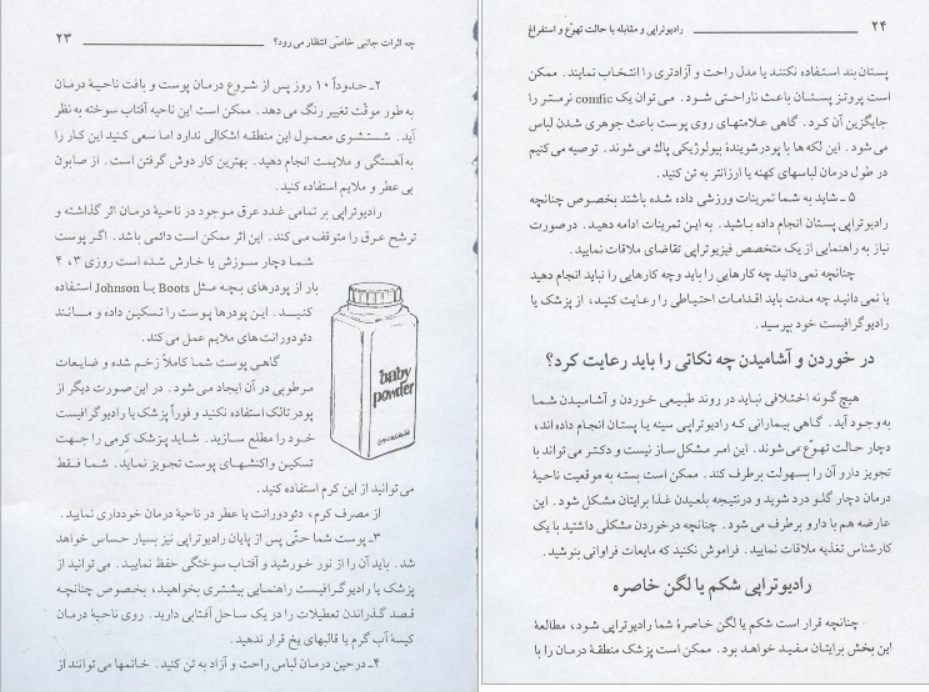 چه اثرات جانبی خاصّی انتظار می‌رود؟ ۲۳
۲ـ حدوداً ۱۰ روز پس از شروع درمان پوست و بافت ناحیهٔ درمان
به طور موقّت تغییر رنگ می‌دهد. ممکن است این ناحیه آفتاب سوخته به نظر
آید. شستشوی معمول این منطقه اشکالی ندارد اما سعی کنید این کار را
به آهستگی و ملایمت انجام دهید. بهترین کار دوش گرفتن است. از صابون
بی عطر و ملایم استفاده کنید.
رادیوتراپی بر تمامی غدد عرق موجود در ناحیهٔ درمان اثر گذاشته و
ترشح عرق را متوقف می‌کند. این اثر ممکن است دائمی باشد. اگر پوست
شما دچار سوزش یا خارش شده است روزی ۳، ۴
بار از پودرهای بچه مثل Boots یا Johnson استفاده
کنید. این پودرها پوست را تسکین داده و مانند
دئودورانت‌های ملایم عمل می‌کند.
گاهی پوست شما کاملاً زخم شده و ضایعات
مرطوبی در آن ایجاد می‌شود. در این صورت دیگر از
پودر تالک استفاده نکنید و فوراً پزشک یا رادیوگرافیست
خود را مطلع سازید. شاید پزشک کرِمی را جهت
تسکین واکنشهای پوست تجویز نماید. شما فقط
می‌توانید از این کرم استفاده کنید.
baby
powder
از مصرف کرم، دئودورانت یا عطر در ناحیهٔ درمان خودداری نمایید.
۳ـ پوست شما حتّی پس از پایان رادیوتراپی نیز بسیار حساس خواهد
شد. باید آن را از نور خورشید و آفتاب سوختگی حفظ نمایید. می‌توانید از
پزشک یا رادیوگرافیست راهنمایی بیشتری بخواهید، بخصوص چنانچه
قصد گذراندن تعطیلات را در یک ساحل آفتابی دارید. روی ناحیهٔ درمان
کیسهٔ آب گرم یا قالبهای یخ قرار ندهید.
۴ـ درحین درمان لباس راحت و آزاد به تن کنید. خانمها می‌توانند از
۲۴ رادیوتراپی و مقابله با حالت تهوّع و استفراغ
پستان بند استفاده نکنند یا مدل راحت و آزادتری را انتخاب نمایند. ممکن
است پروتز پستان باعث ناراحتی شود. می‌توان یک comfic نرمتر را
جایگزین آن کرد. گاهی علامتهای روی پوست باعث جوهری شدن لباس
می‌شود. این لکه‌ها با پودر شویندهٔ بیولوژیکی پاک می‌شوند. توصیه می‌کنیم
در طول درمان لباسهای کهنه یا ارزانتر به تن کنید.
۵ ـ شاید به شما تمرینات ورزشی داده شده باشند بخصوص چنانچه
رادیوتراپی پستان انجام داده باشید. به این تمرینات ادامه دهید. درصورت
نیاز به راهنمایی از یک متخصص فیزیوتراپی تقاضای ملاقات نمایید.
چنانچه نمی‌دانید چه کارهایی را باید و چه کارهایی را نباید انجام دهید
یا نمی‌دانید چه مدت باید اقدامات احتیاطی را رعایت کنید، از پزشک یا
رادیوگرافیست خود بپرسید.
در خوردن و آشامیدن چه نکاتی را باید رعایت کرد؟
هیچ گونه اختلافی نباید در روند طبیعی خوردن و آشامیدن شما
به وجود آید. گاهی بیمارانی که رادیوتراپی سینه یا پستان انجام داده‌اند،
دچار حالت تهوّع می‌شوند. این امر مشکل ساز نیست و دکتر می‌تواند با
تجویز دارو آن را بسهولت برطرف کند. ممکن است بسته به موقعیت ناحیهٔ
درمان دچار گلو درد شوید و درنتیجه بلعیدن غذا برایتان مشکل شود. این
عارضه هم با دارو برطرف می‌شود. چنانچه درخوردن مشکلی داشتید با یک
کارشناس تغذیه ملاقات نمایید. فراموش نکنید که مایعات فراوانی بنوشید.
رادیوتراپی شکم یا لگن خاصره
چنانچه قرار است شکم یا لگن خاصرهٔ شما رادیوتراپی شود، مطالعهٔ
این بخش برایتان مفید خواهد بود. ممکن است پزشک منطقهٔ درمان را با